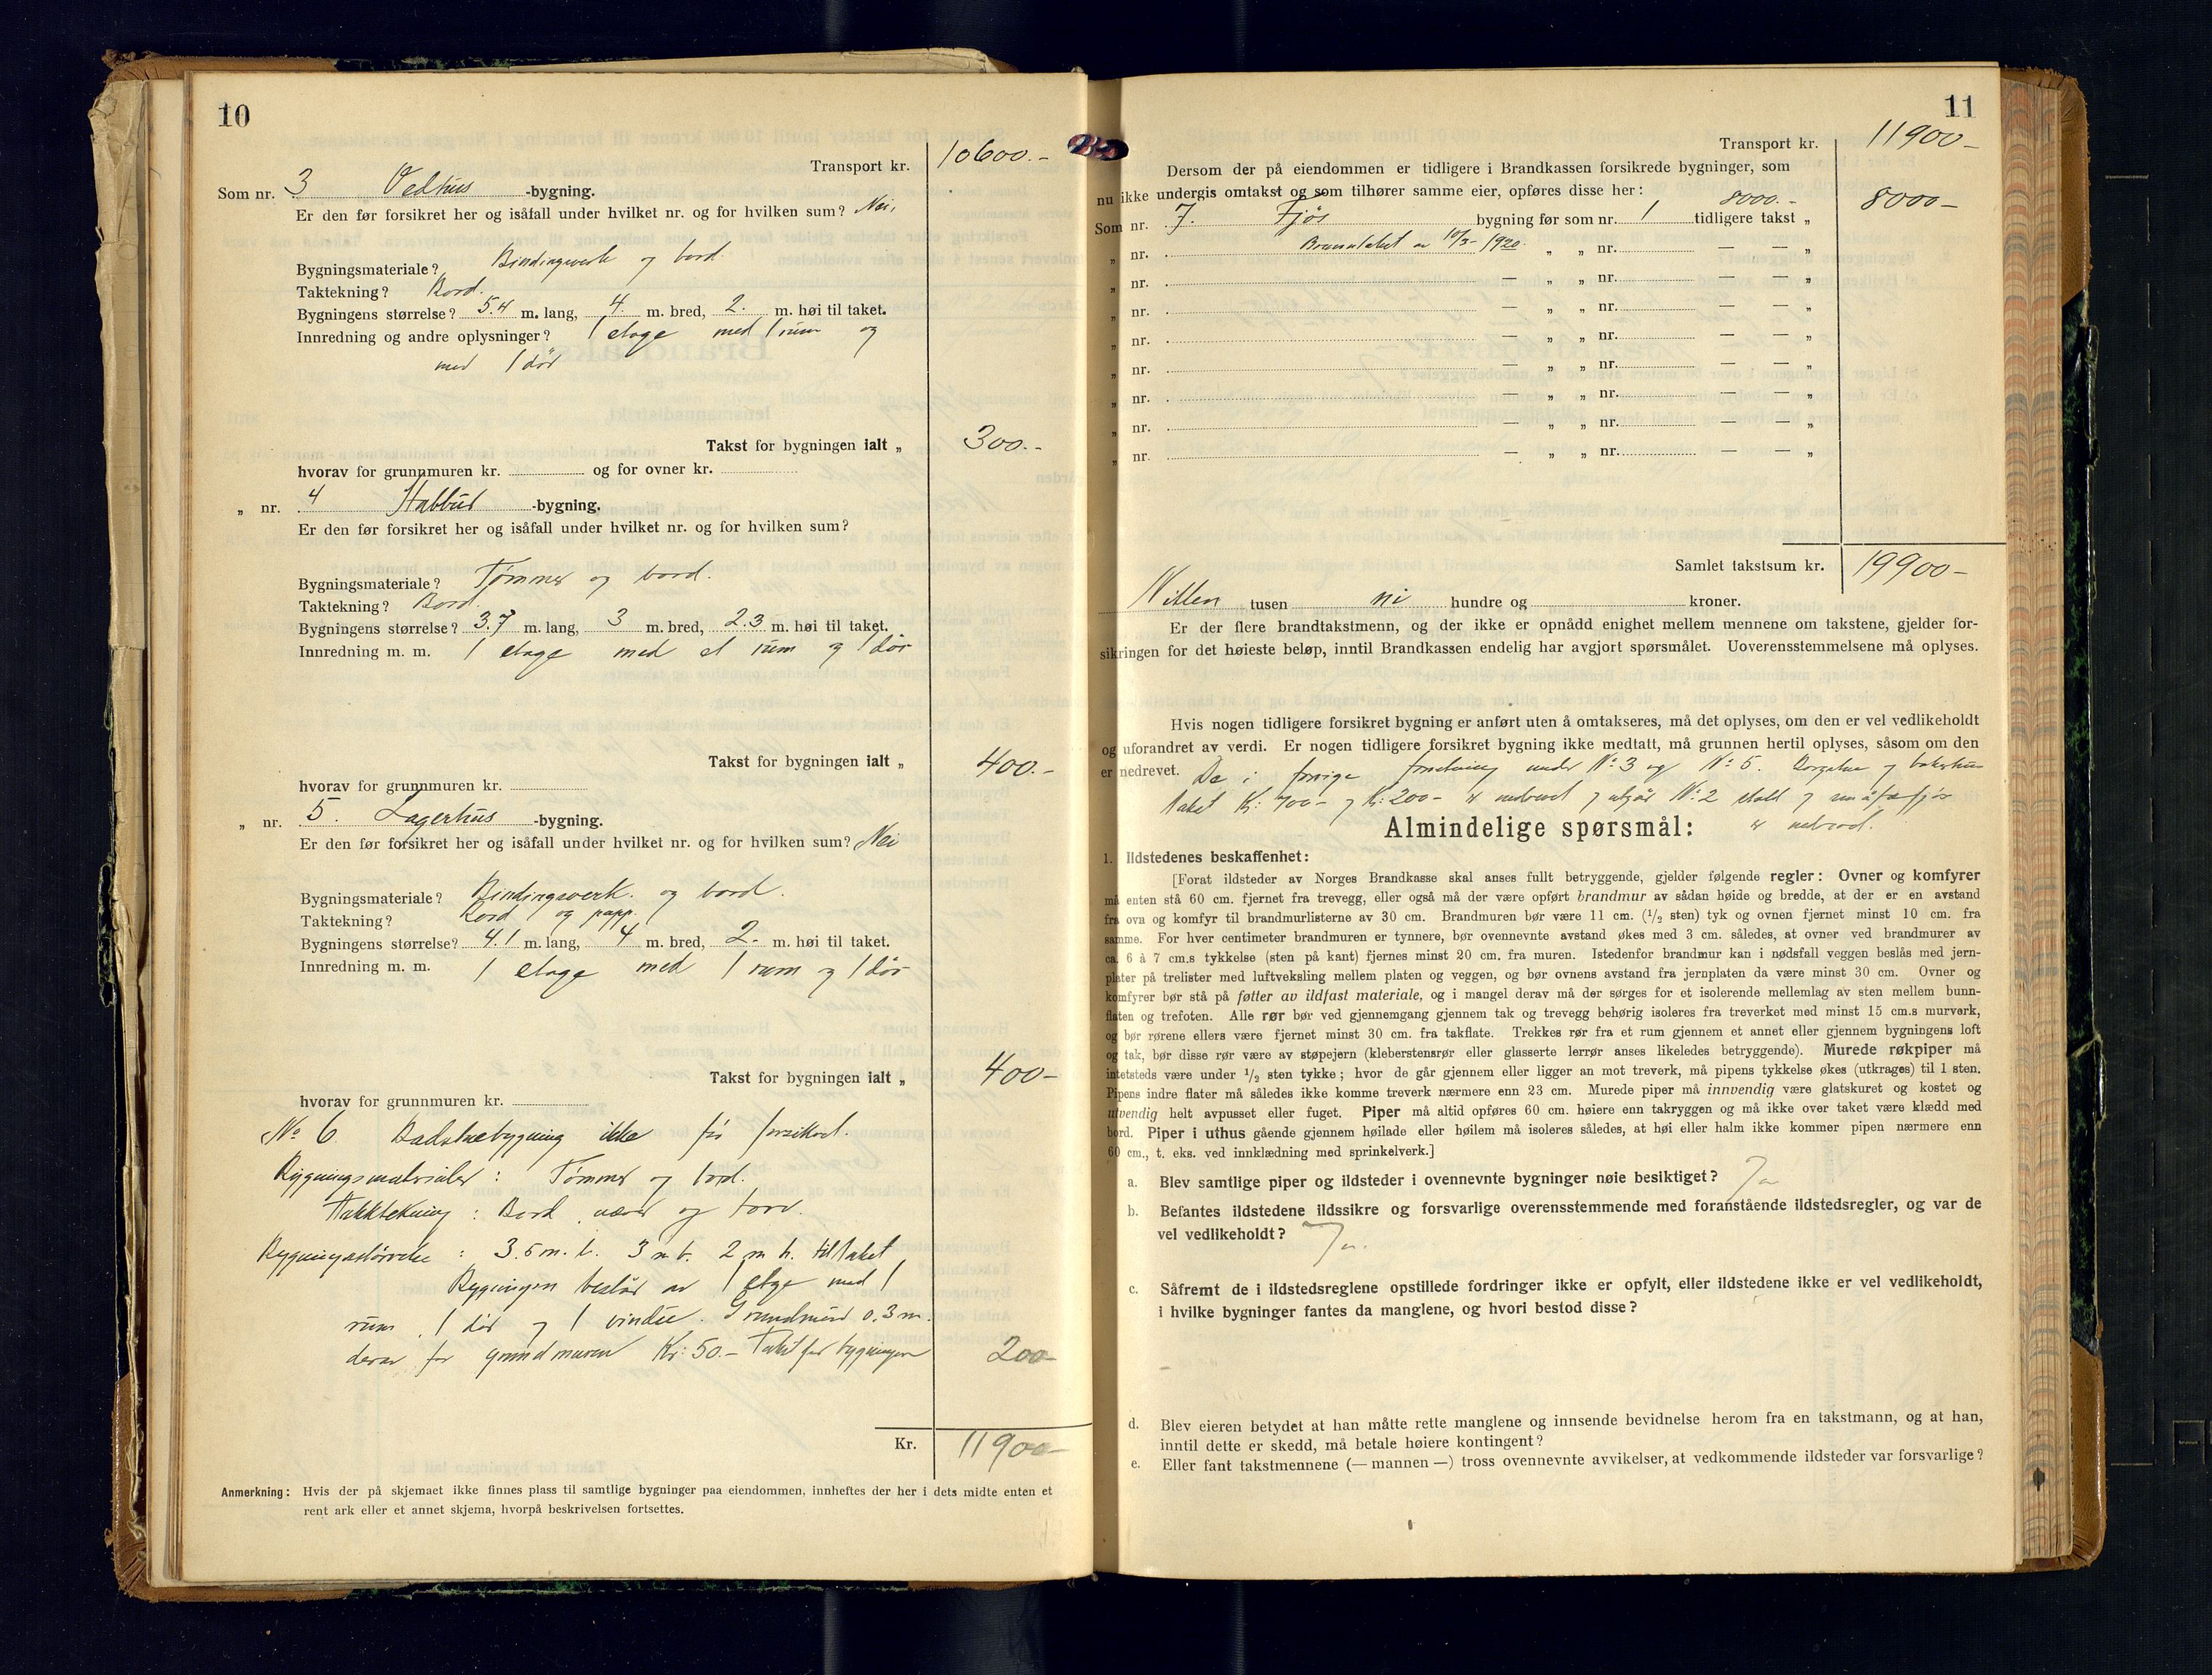 10
Transport kr. 10600.-
Som nr. 3 Vedhus -bygning.
Er den før forsikret her og isåfall under hvilket nr. og for hvilken sum? Nei,
Bygningsmateriale? Bindingsverk og bord.
Taktekning? Bord.
Bygningens størrelse? 5.4 m. lang, 4. m. bred, 2. m. høi til taket.
Innredning og andre oplysninger? 1 etage med 1 rum og
med 1 dør
Takst for bygningen ialt „ 300.-
hvorav for grunnmuren kr. og for ovner kr.
„ nr. 4 Stabbud -bygning.
Er den før forsikret her og isåfall under hvilket nr. og for hvilken sum?
Bygningsmateriale? Tømmer og bord.
Taktekning? Bord.
Bygningens størrelse? 3.7 m. lang, 3 m. bred, 2.3 m. høi til taket.
Innredning m. m. 1 etage med et rum og 1 dør
Takst for bygningen ialt „ 400.-
hvorav for grunnmuren kr.
„ nr. 5. Lagerhus -bygning.
Er den før forsikret her og isåfall under hvilket nr. og for hvilken sum? Nei
Bygningsmateriale? Bindingsverk. og bord.
Taktekning? Bord og papp.
Bygningens størrelse? 4.1 m. lang, 4 m. bred, 2- m. høi til taket.
Innredning m. m. 1 etage med 1 rum og 1 dør
Takst for bygningen ialt „ 400-
hvorav for grunnmuren kr.
No 6 Badstuebygning ikke før forsikret.
Bygningsmaterialer : Tømmer og bord.
Takktekning : Bord, næver og torv.
Bygningsstørrelse : 3.5 m. l. 3 m b. 2 m h. til taket
Bygningen består av 1 etage med 1
rum, 1 dør og 1 vindu. Grundmur 0.3 m.
derav for grundmuren Kr: 50.- Takst for bygningen 200-
Kr. 11900-
Anmerkning: Hvis der på skjemaet ikke finnes plass til samtlige bygninger paa eiendommen, innheftes der her i dets midte enten et
rent ark eller et annet skjema, hvorpå beskrivelsen fortsettes.
11
Transport kr. 11900-
Dersom der på eiendommen er tidligere i Brandkassen forsikrede bygninger, som
nu ikke undergis omtakst og som tilhører samme eier, opføres disse her:
Som nr. 7. Fjøs bygning før som nr. 1 tidligere takst „ 8000.- 8000-
„ nr. Brandtakst av 10/3- 1920. „ „ nr. — — „
„ nr. — „ „ nr. — — „
„ nr. — „ „ nr. — — „
„ nr. — „ „ nr. — — „
„ nr. — „ „ nr. — — „
„ nr. — „ „ nr. — — „
„ nr. — „ „ nr. — — „
„ nr. — „ „ nr. — — „
Samlet takstsum kr. 19900-
Nitten tusen ni hundre og kroner.
Er der flere brandtakstmenn, og der ikke er opnådd enighet mellem mennene om takstene, gjelder for-
sikringen for det høieste beløp, inntil Brandkassen endelig har avgjort spørsmålet. Uoverensstemmelsene må oplyses.
Hvis nogen tidligere forsikret bygning er anført uten å omtakseres, må det oplyses, om den er vel vedlikeholdt
og uforandret av verdi. Er nogen tidligere forsikret bygning ikke medtatt, må grunnen hertil oplyses, såsom om den
er nedrevet. De i forrige forretning under No 3 og No 5. Borgstue og bakerhus
takst Kr: 700- og Kr: 200- er nedrevet og utgår No 2 stall og småfæfjøs
er nedrevet.
Almindelige spørsmål:
1. Ildstedenes beskaffenhet:
[Forat ildsteder av Norges Brandkasse skal anses fullt betryggende, gjelder følgende regler: Ovner og komfyrer
må enten stå 60 cm. fjernet fra trevegg, eller også må der være opført brandmur av sådan høide og bredde, at der er en avstand
fra ovn og komfyr til brandmurlisterne av 30 cm. Brandmuren bør være 11 cm. (1/2 sten) tyk og ovnen fjernet minst 10 cm. fra
samme. For hver centimeter brandmuren er tynnere, bør ovennevnte avstand økes med 3 cm. således, at ovner ved brandmurer av
ca. 6 à 7 cm.s tykkelse (sten på kant) fjernes minst 20 cm. fra muren. Istedenfor brandmur kan i nødsfall veggen beslås med jern-
plater på trelister med luftveksling mellem platen og veggen, og bør ovnens avstand fra jernplaten da være minst 30 cm. Ovner og
komfyrer bør stå på føtter av ildfast materiale, og i mangel derav må der sørges for et isolerende mellemlag av sten mellem bunn-
flaten og trefoten. Alle rør bør ved gjennemgang gjennem tak og trevegg behørig isoleres fra treverket med minst 15 cm.s murverk,
og bør rørene ellers være fjernet minst 30 cm. fra takflate. Trekkes rør fra et rum gjennem et annet eller gjennem bygningens loft
og tak, bør disse rør være av støpejern (kleberstensrør eller glasserte lerrør anses likeledes betryggende). Murede røkpiper må
intetsteds være under 1/2 sten tykke; hvor de går gjennem eller ligger an mot treverk, må pipens tykkelse økes (utkrages) til 1 sten.
Pipens indre flater må således ikke komme treverk nærmere enn 23 cm. Murede piper må innvendig være glatskuret og kostet og
utvendig helt avpusset eller fuget. Piper må altid opføres 60 cm. høiere enn takryggen og må ikke over taket være klædd med
bord. Piper i uthus gående gjennem høilade eller høilem må isoleres således, at høi eller halm ikke kommer pipen nærmere enn
60 cm., t. eks. ved innklædning med sprinkelverk.]
a. Blev samtlige piper og ildsteder i ovennevnte bygninger nøie besiktiget? Ja
b. Befantes ildstedene ildssikre og forsvarlige overensstemmende med foranstående ildstedsregler, og var de
vel vedlikeholdt? Ja.
c. Såfremt de i ildstedsreglene opstillede fordringer ikke er opfylt, eller ildstedene ikke er vel vedlikeholdt,
i hvilke bygninger fantes da manglene, og hvori bestod disse?
d. Blev eieren betydet at han måtte rette manglene og innsende bevidnelse herom fra en takstmann, og at han,
inntil dette er skedd, må betale høiere kontingent?
e. Eller fant takstmennene (— mannen —) tross ovennevnte avvikelser, at vedkommende ildsteder var forsvarlige?